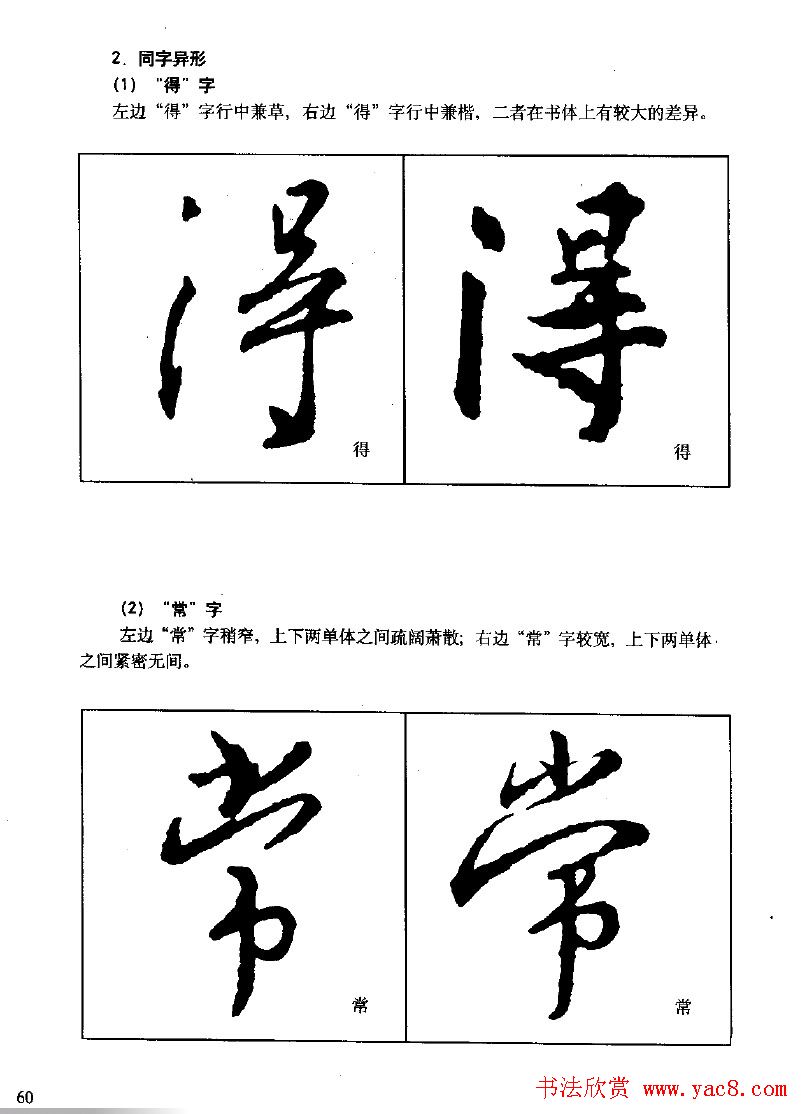 2．同字异形
(1) “得”字
左边“得”字行中兼草，右边“得”字行中兼楷，二者在书体上有较大的差异。
得 得
得 得
(2) “常”字
左边“常”字稍窄，上下两单体之间疏阔萧散；右边“常”字较宽，上下两单体
之间紧密无间。
常 常
常 常
60
书法欣赏 www.yac8.com